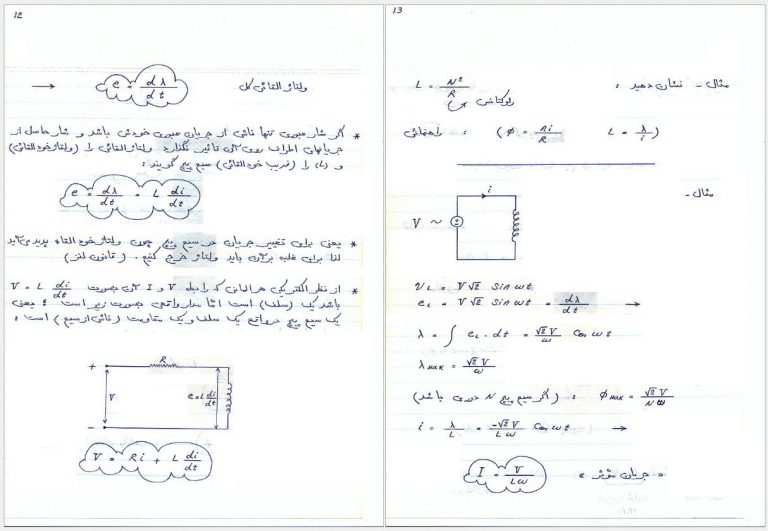 12
ولتاژ القائی کل e = dλ/dt →
* اگر شار عبوری تنها ناشی از جریان عبوری خودش باشد و شار حاصل از
جریانهای اطراف روی آن تاثیر نگذارد ولتاژ القائی را (ولتاژ خود القائی)
و را (ضریب خود القائی) سیم پیچ گویند :
e = dλ/dt = L di/dt
* یعنی برای تغییر جریان در سیم پیچ چون ولتاژ خود القاء پدید می آید
لذا برای غلبه بر آن باید ولتاژ خرج کنیم . ( قانون لنز )
* از نظر الکتریکی هر المانی که رابطه V و I آن بصورت V = L di/dt
باشد یک (سلف) است اما مدار واقعی بصورت زیر است ؛ یعنی
یک سیم پیچ در واقع یک سلف و یک مقاومت (ناشی از سیم) است :
R
+
V
e = L di/dt
-
V = Ri + L di/dt
13
مثال - نشان دهید : L = N²/R
رلوکتانس
راهنمائی : ( φ = Ni/R L = λ/i )
مثال -
i
V ~
vL = V√2 Sin ωt
eL = V√2 Sin ωt = dλ/dt →
λ = ∫ eL . dt = √2 V/ω Cos ωt
λmax = √2 V/ω
(اگر سیم پیچ N دوری باشد) : φmax = √2 V/Nω
i = λ/L = -√2 V/Lω Cos ωt →
I = V/Lω « جریان مؤثر »